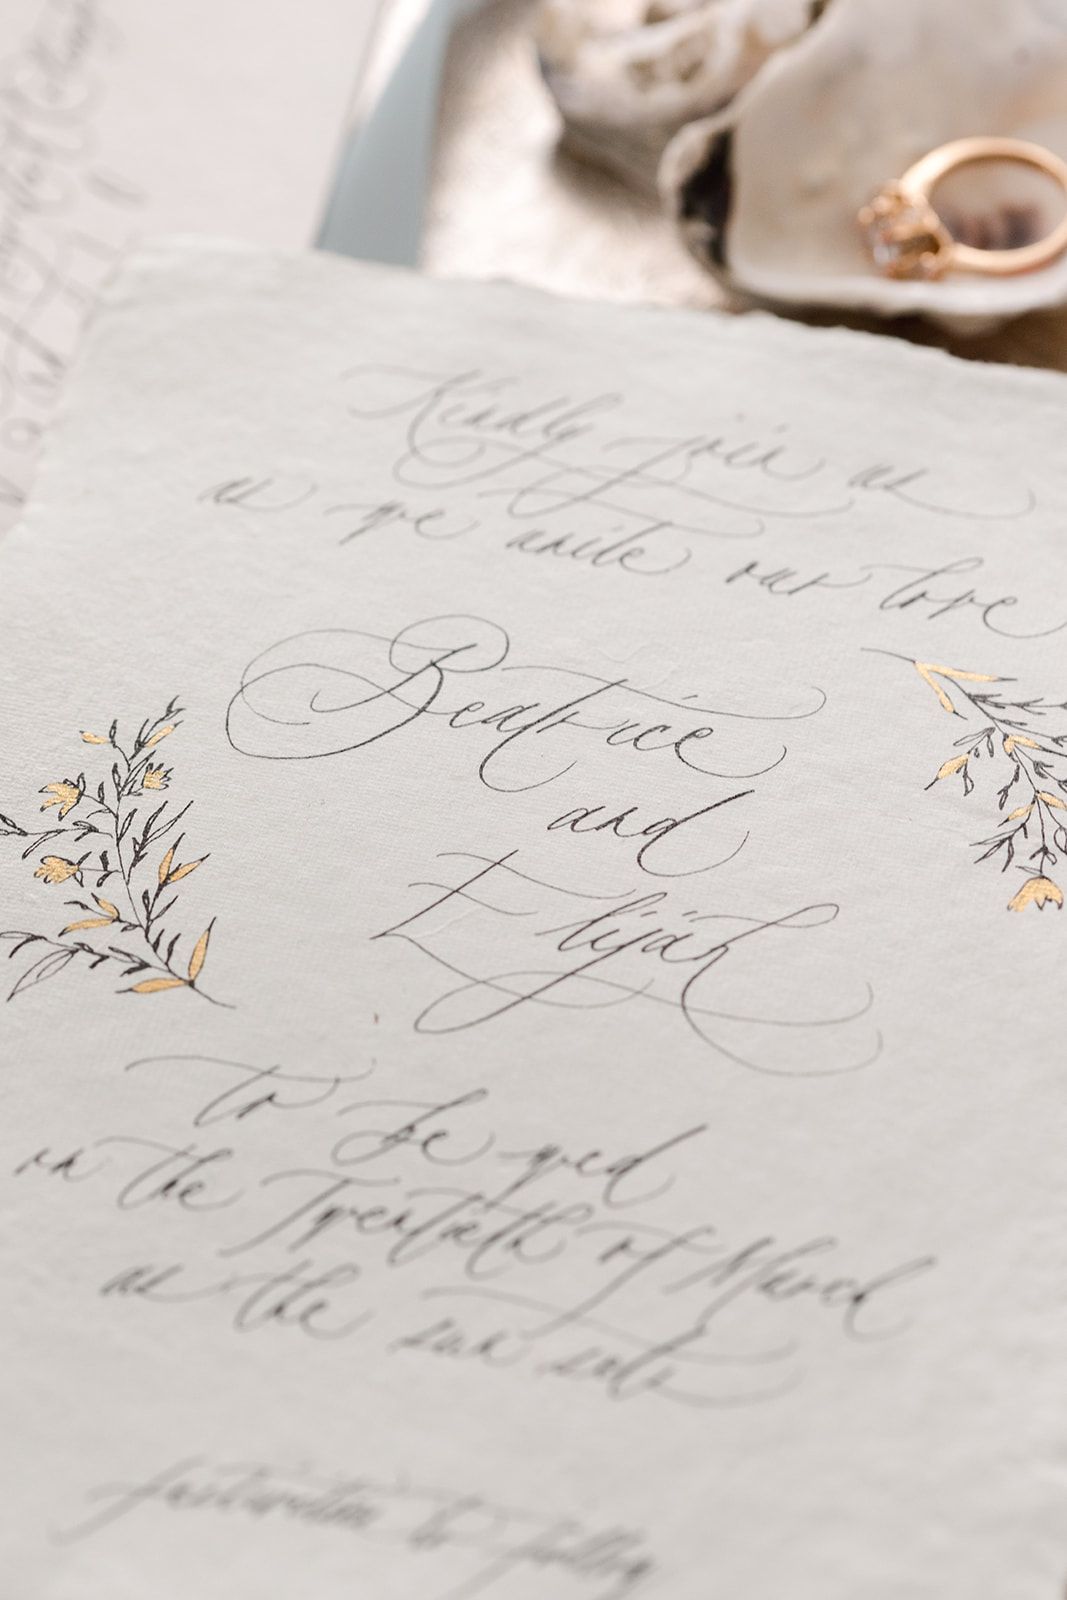 Kindly join us
as we unite our love
Beatrice
and
Elijah
to be wed
on the Twentieth of March
as the sun sets
festivities to follow